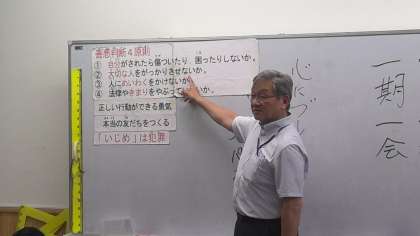 善悪判断4原則
① 自分がされたら傷ついたり、困ったりしないか。
② 大切な人をがっかりさせないか。
③ 人にめいわくをかけないか
④ 法律やきまりをやぶって いか。
正しい行動ができる勇気
本当の友だちをつくる
「いじめ」は犯罪
心に
一期一会